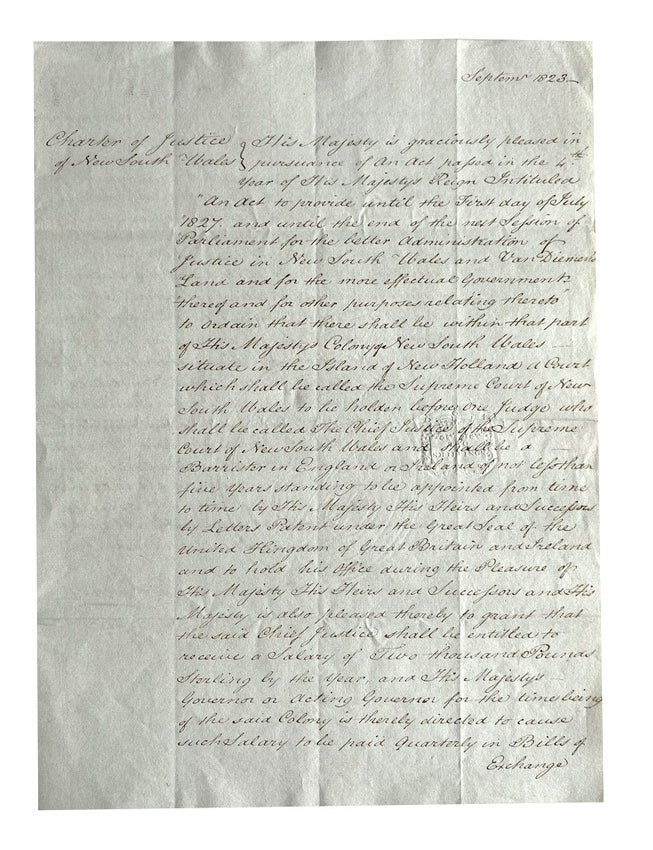 Septemr 1823
Charter of Justice
of New South Wales
His Majesty is graciously pleased in
pursuance of An Act passed in the 4th
Year of His Majestys Reign Intituled
"An Act to provide until the First day of July
1827. and until the end of the next Session of
Parliament for the better Administration of
Justice in New South Wales and Van Diemens
Land and for the more effectual Government
thereof and for other purposes relating thereto"
to ordain that there shall be within that part
of His Majestys Colony of New South Wales
situate in the Island of New Holland a Court
which shall be called the Supreme Court of New
South Wales to be holden before one Judge who
shall be called The Chief Justice of the Supreme
Court of New South Wales and shall be a
Barrister in England or Ireland of not less than
five Years standing to be appointed from time
to time by His Majesty His Heirs and Successors
by Letters Patent under the Great Seal of the
United Kingdom of Great Britain and Ireland
and to hold his Office during the Pleasure of
His Majesty His Heirs and Successors and His
Majesty is also pleased thereby to grant that
the said Chief Justice shall be entitled to
receive a Salary of Two thousand Pounds
Sterling by the Year, and His Majestys
Governor or Acting Governor for the time being
of the said Colony is thereby directed to cause
such Salary to be paid Quarterly in Bills of
Exchange